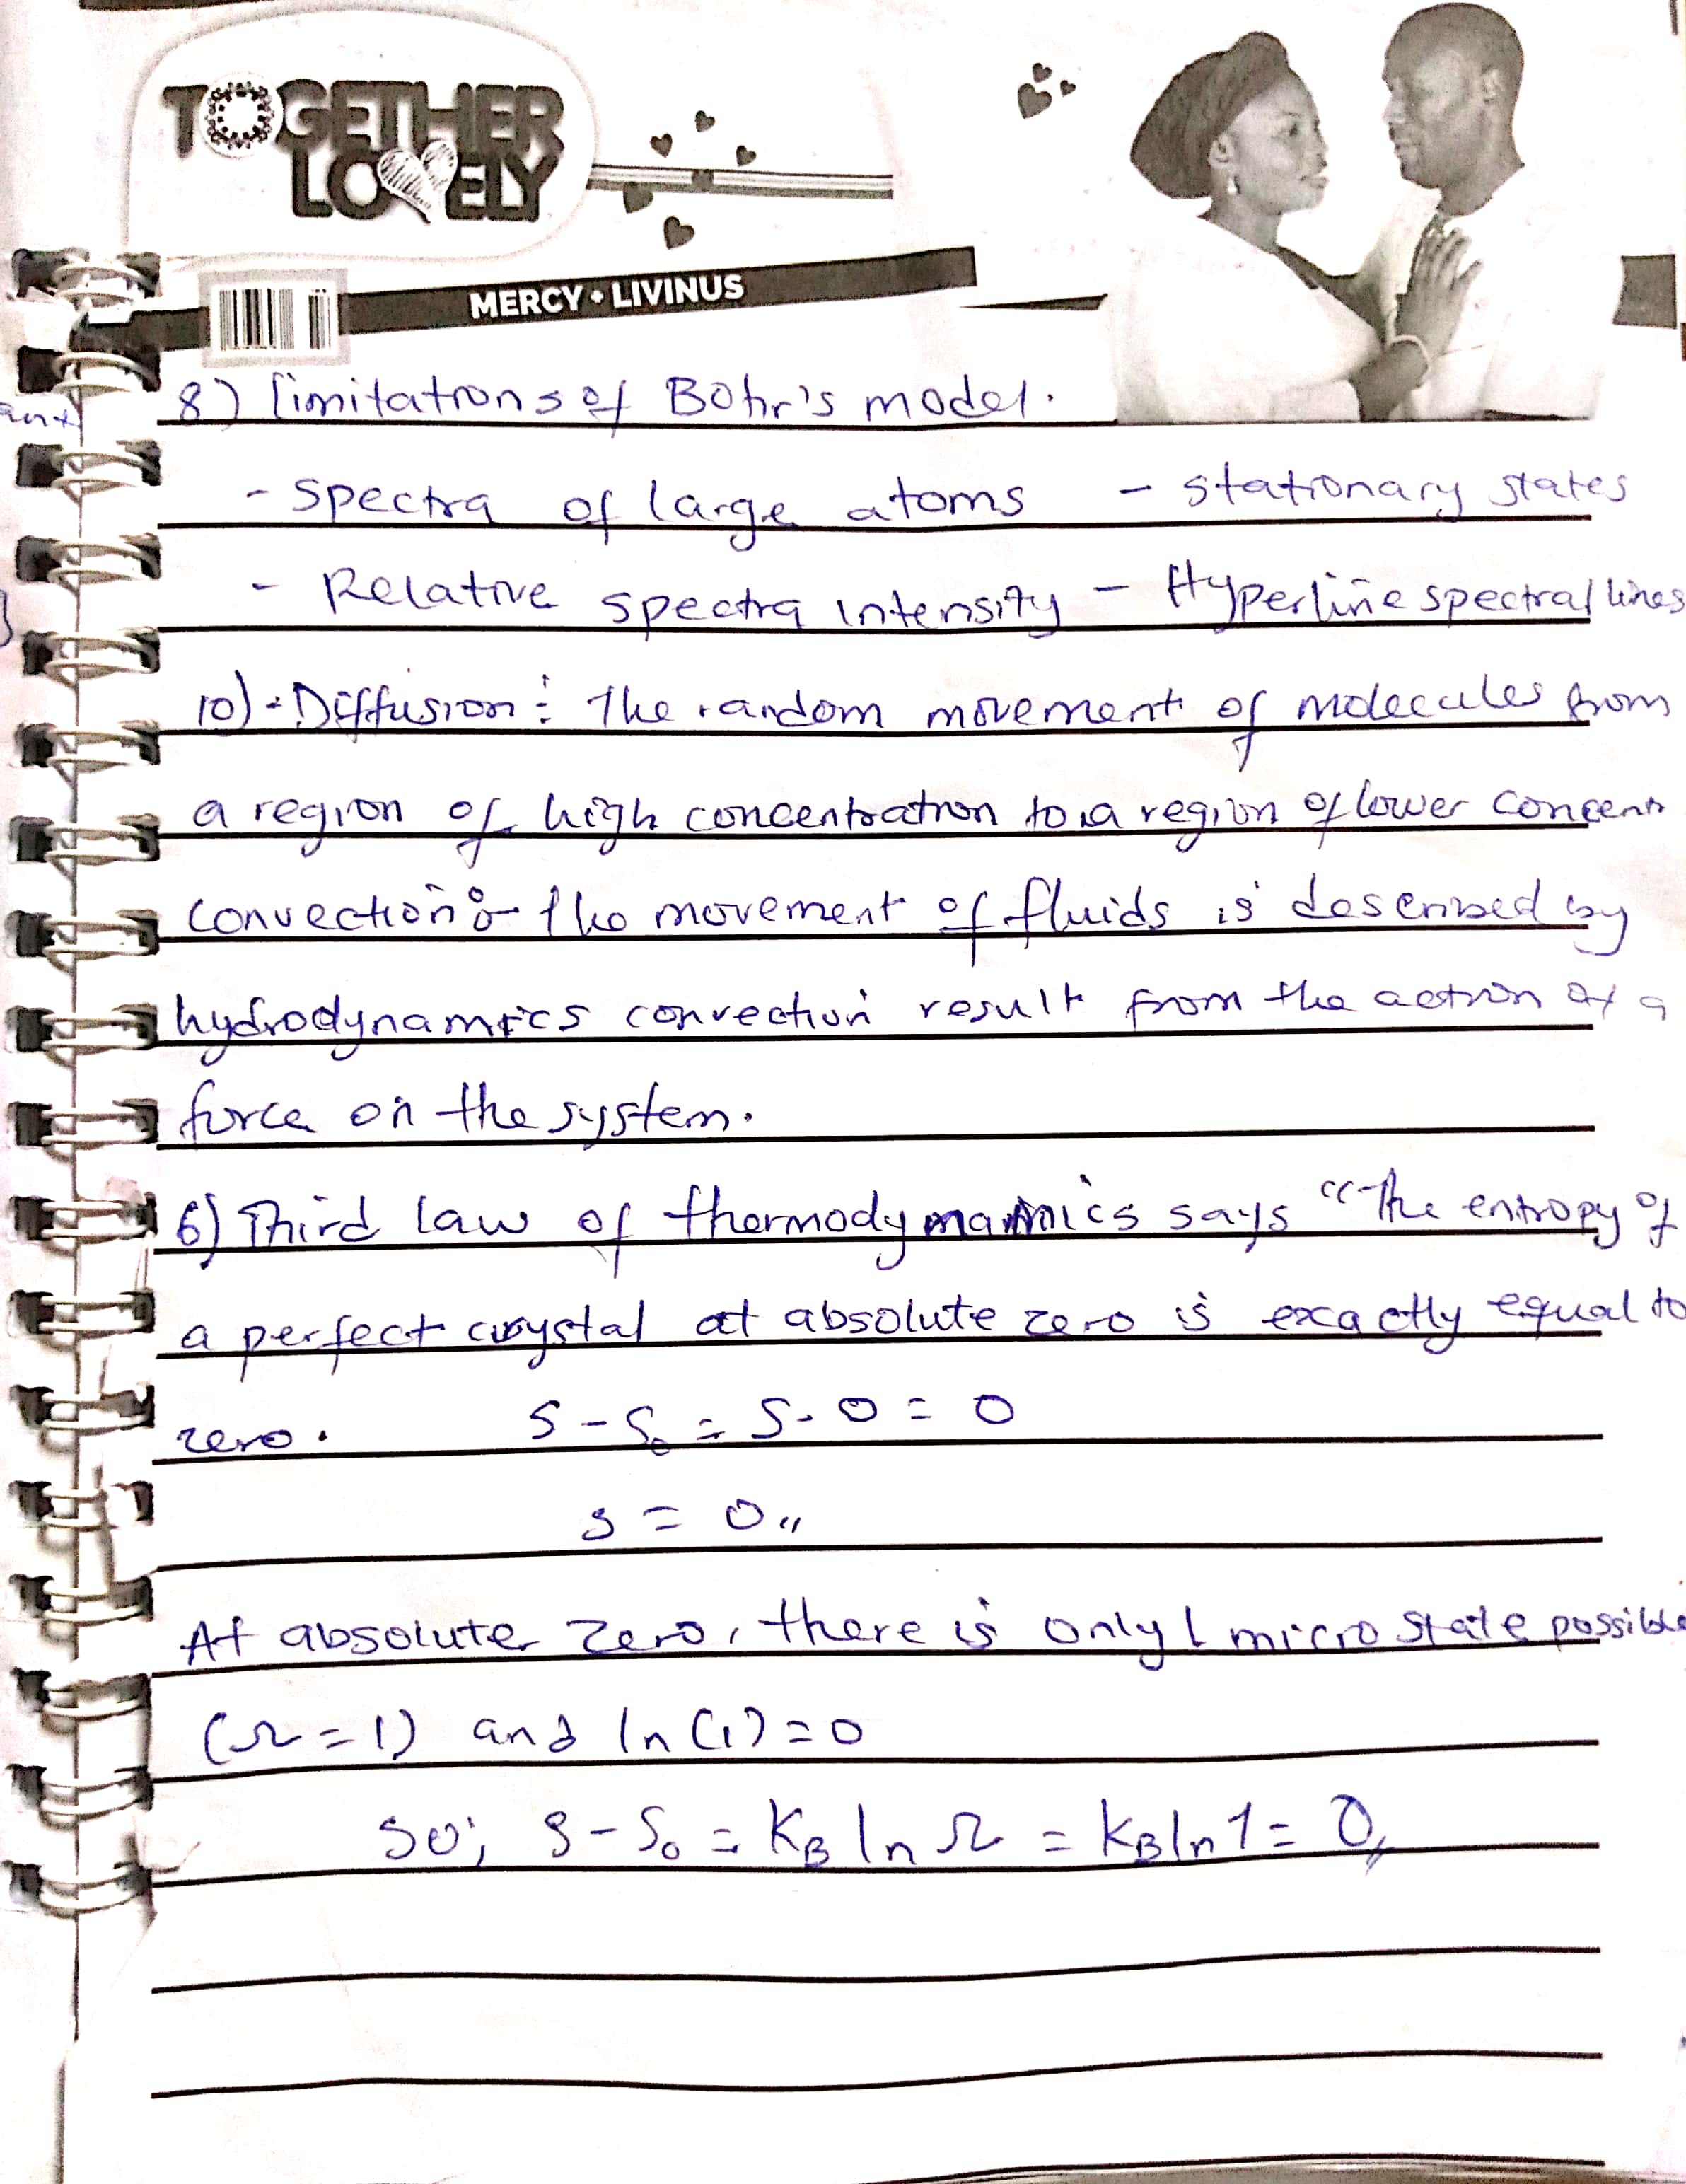 TOGETHER
LOVELY
MERCY • LIVINUS
8) limitations of Bohr's model.
- Spectra of large atoms - stationary states
- Relative spectra intensity - Hyperline spectral lines
10) - Diffusion : The random movement of molecules from
a region of high concentration to a region of lower concentr
convection :- the movement of fluids is described by
hydrodynamics convection result from the action of a
force on the system.
6) Third law of thermodymamics says "The entropy of
a perfect crystal at absolute zero is exactly equal to
zero. S - S₀ = S - 0 = 0
S = 0,,
At absolute zero, there is only 1 micro state possible
(Ω = 1) and ln(1) = 0
So; S - S₀ = KB ln Ω = KB ln 1 = 0,,